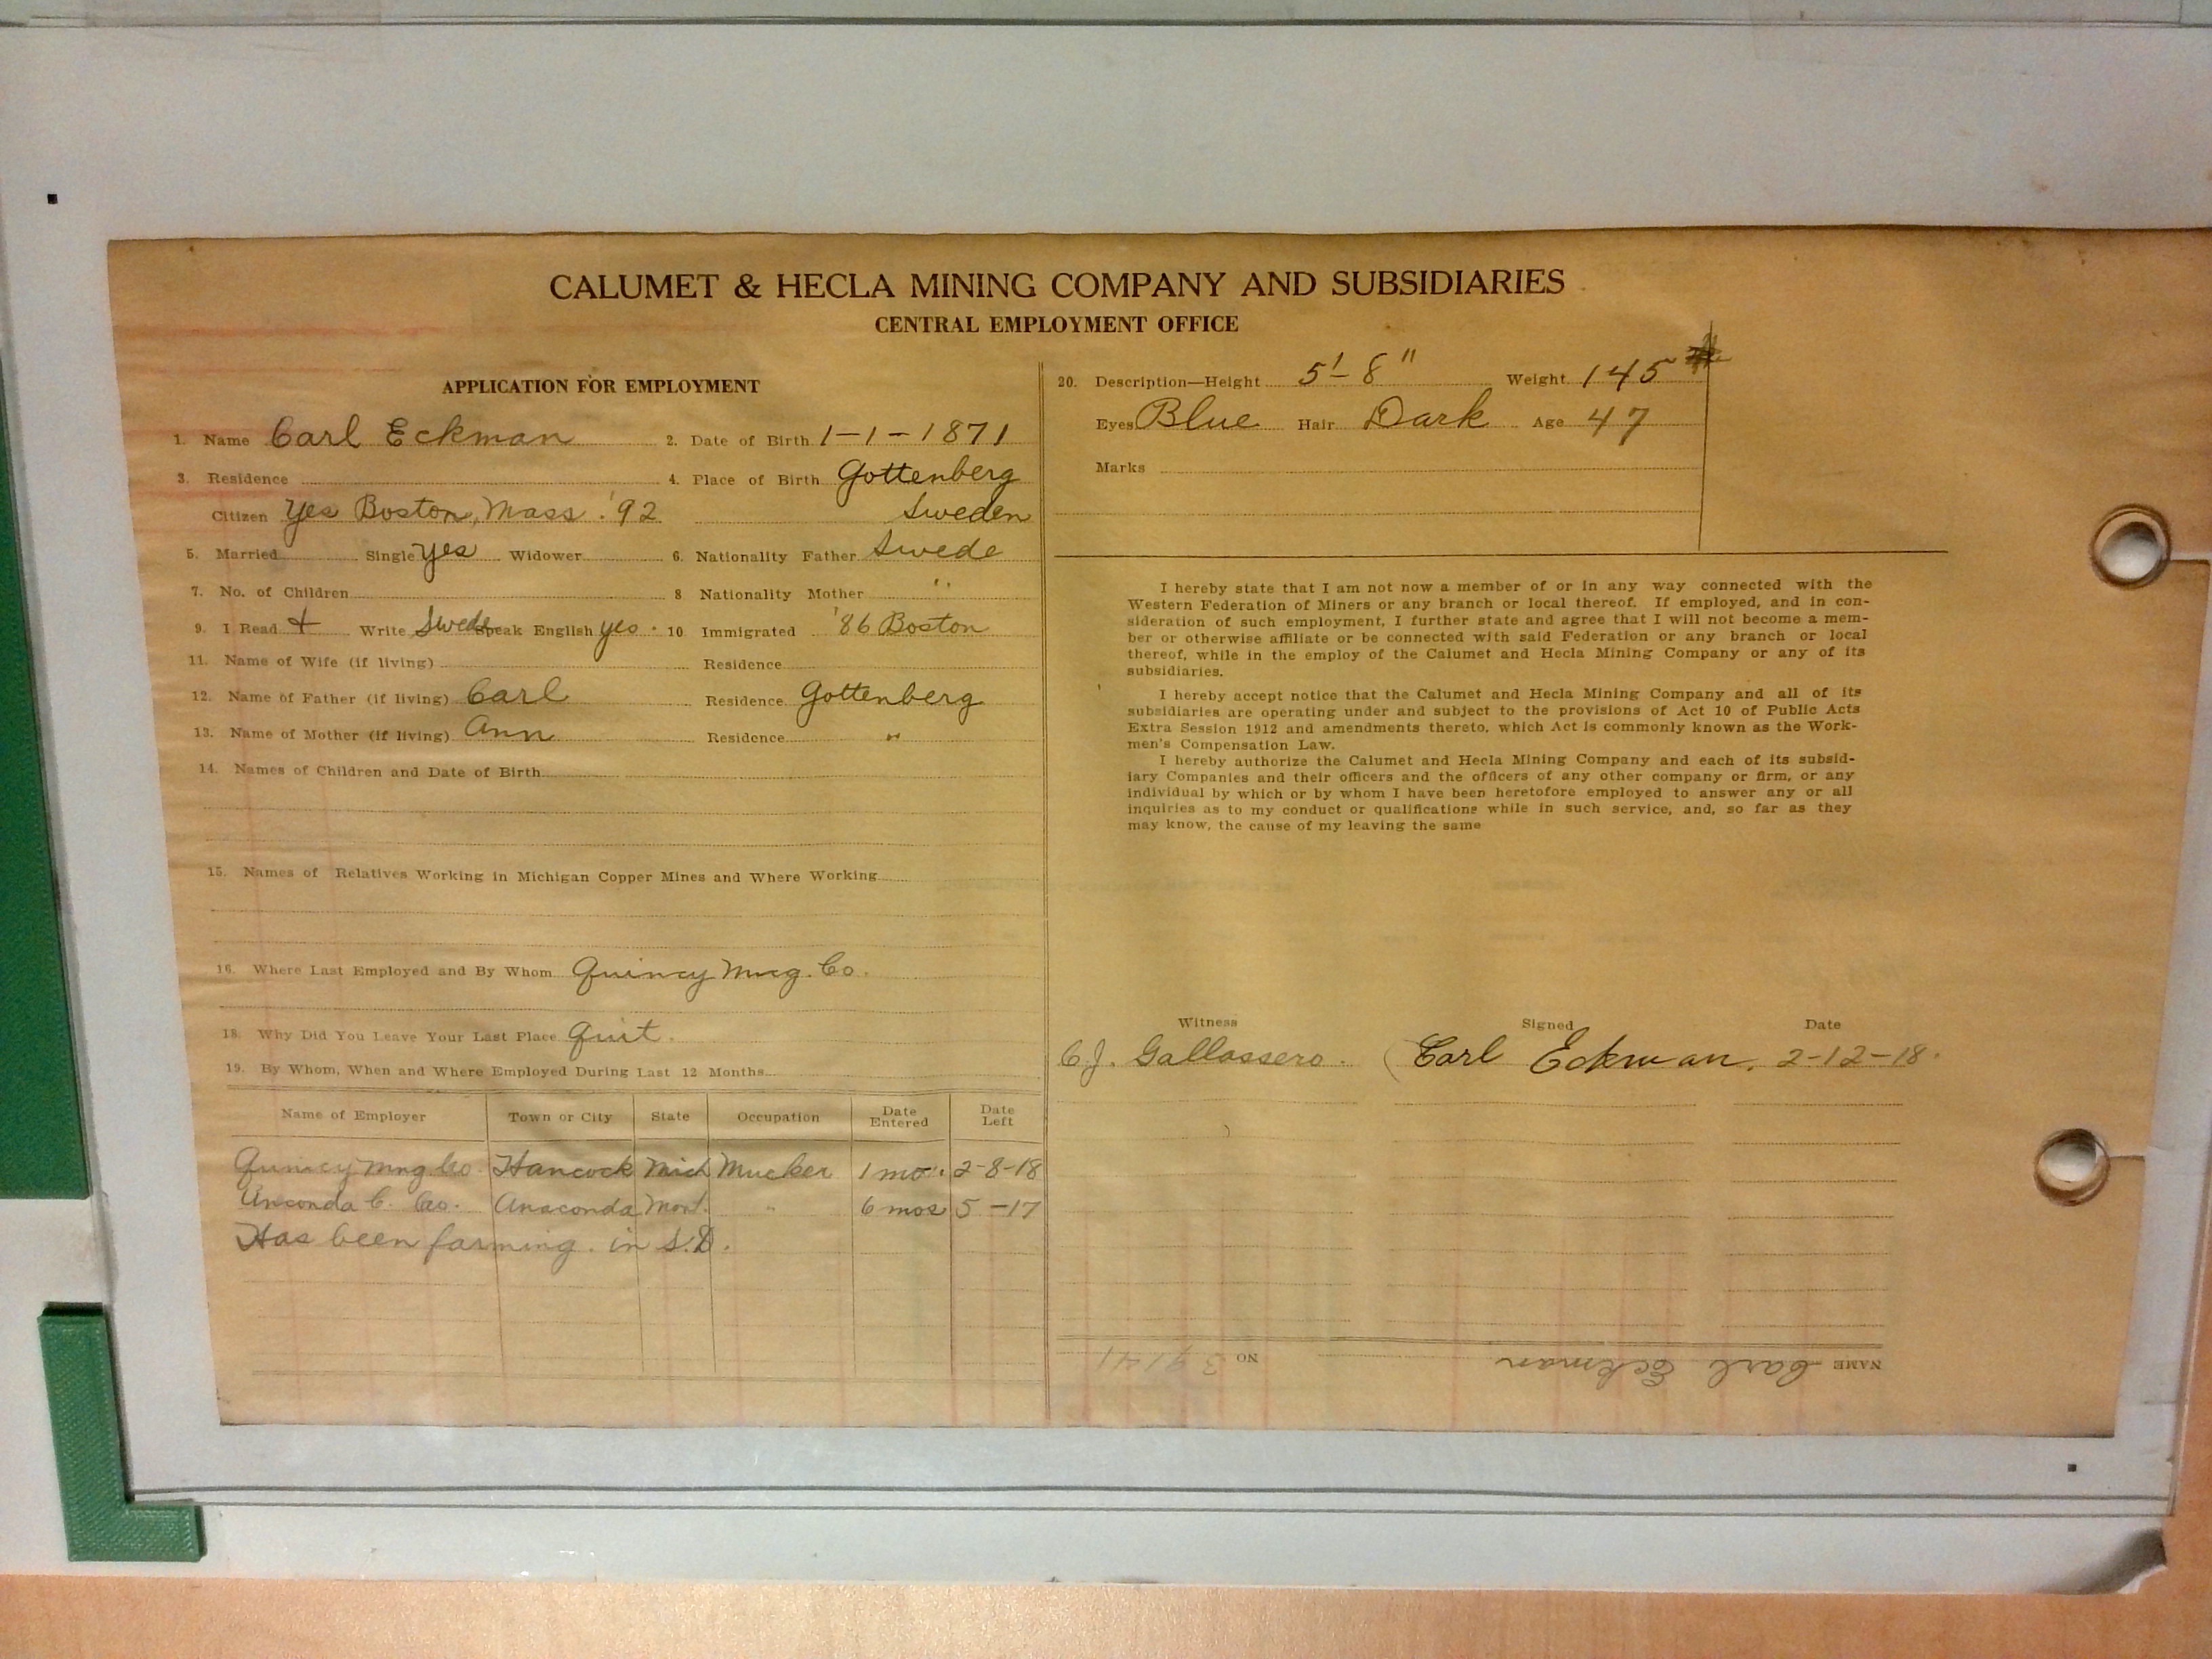 CALUMET & HECLA MINING COMPANY AND SUBSIDIARIES
CENTRAL EMPLOYMENT OFFICE
APPLICATION FOR EMPLOYMENT
1. Name Carl Eckman 2. Date of Birth 1-1-1871
3. Residence 4. Place of Birth Gottenberg
Citizen Yes Boston, Mass. '92 Sweden
5. Married Single yes Widower 6. Nationality Father Swede
7. No. of Children 8 Nationality Mother "
9. I Read + Write Swede Speak English yes. 10. Immigrated '86 Boston
11. Name of Wife (if living) Residence
12. Name of Father (if living) Carl Residence Gottenberg
13. Name of Mother (if living) Ann Residence "
14. Names of Children and Date of Birth
15. Names of Relatives Working in Michigan Copper Mines and Where Working
16. Where Last Employed and By Whom Quincy Mng. Co.
18. Why Did You Leave Your Last Place Quit.
19. By Whom, When and Where Employed During Last 12 Months
Name of Employer Town or City State Occupation Date Entered Date Left
Quincy Mng. Co. Hancock Mich Mucker 1 mo. 2-8-18
Anconda C. Co. Anaconda Mont. " 6 mos 5-17
Has been farming in S.D.
20. Description—Height 5'-8" Weight 145 #
Eyes Blue Hair Dark Age 47
Marks
I hereby state that I am not now a member of or in any way connected with the
Western Federation of Miners or any branch or local thereof. If employed, and in con-
sideration of such employment, I further state and agree that I will not become a mem-
ber or otherwise affiliate or be connected with said Federation or any branch or local
thereof, while in the employ of the Calumet and Hecla Mining Company or any of its
subsidiaries.
I hereby accept notice that the Calumet and Hecla Mining Company and all of its
subsidiaries are operating under and subject to the provisions of Act 10 of Public Acts
Extra Session 1912 and amendments thereto, which Act is commonly known as the Work-
men's Compensation Law.
I hereby authorize the Calumet and Hecla Mining Company and each of its subsid-
iary Companies and their officers and the officers of any other company or firm, or any
individual by which or by whom I have been heretofore employed to answer any or all
inquiries as to my conduct or qualifications while in such service, and, so far as they
may know, the cause of my leaving the same
Witness Signed Date
C.J. Gallassero. Carl Eckman. 2-12-18.
NAME Carl Eckman NO